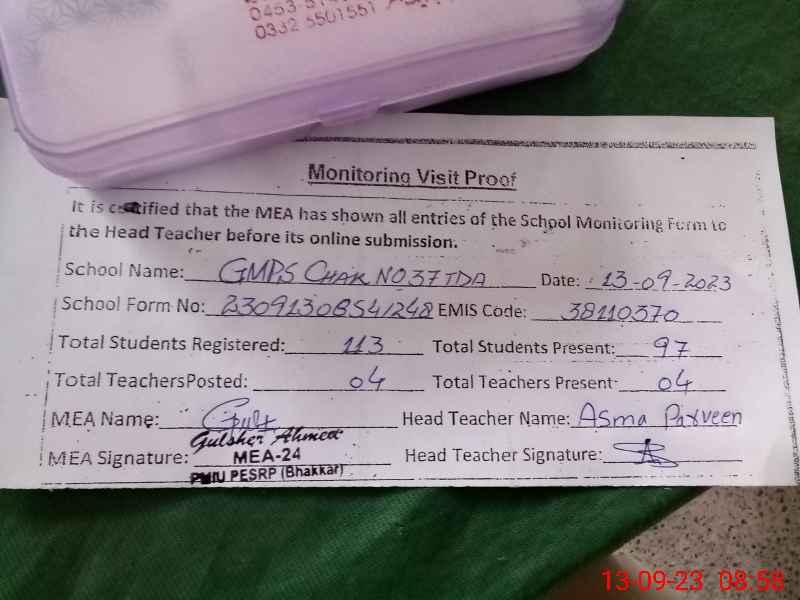 0332 5501551
Monitoring Visit Proof
It is certified that the MEA has shown all entries of the School Monitoring Form to
the Head Teacher before its online submission.
School Name: GMPS CHAK NO 37 TDA Date: 13-09-2023
School Form No: 23091308541248 EMIS Code: 38110370
Total Students Registered: 113 Total Students Present: 97
Total Teachers Posted: 04 Total Teachers Present: 04
MEA Name: Head Teacher Name: Asma Parveen
Gulsher Ahmed
MEA Signature: MEA-24 Head Teacher Signature:
PMIU PESRP (Bhakkar)
13-09-23 08:58